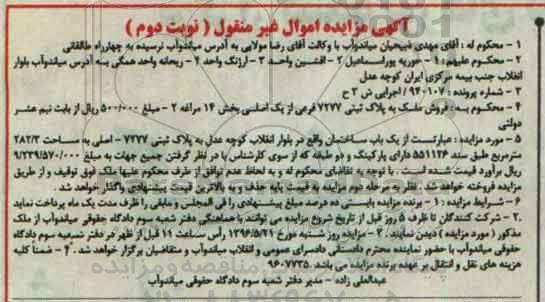 آگهی مزایده اموال غیر منقول ( نوبت دوم )
۱ - محکوم له : آقای مهدی ذبیحیان میاندوآب با وکالت آقای رضا مولایی به آدرس میاندوآب نرسیده به چهارراه طالقانی
۲ - محکوم علیهم : ۱ - حوریه پوراسماعیل ۲ - افشین واحد ۳ - ارژنگ واحد ۴ - ریحانه واحد همگی به آدرس میاندوآب بلوار
انقلاب جنب بیمه مرکزی ایران کوچه عدل
۳ - شماره پرونده : ۹۴۰۱۰۷ / اجرایی ش ۳ ح
۴ - محکوم به : فروش ملک به پلاک ثبتی ۷۲۷۷ فرعی از یک اصلی بخش ۱۴ مراغه ۲ - مبلغ ۵۰۰/۰۰۰ ریال از بابت نیم عشر
دولتی
۵ - مورد مزایده : عبارتست از یک باب ساختمان واقع در بلوار انقلاب کوچه عدل به پلاک ثبتی ۷۲۷۷ - اصلی به مساحت ۲۸۲/۳
مترمربع طبق سند ۵۵۱۱۲۴ دارای پارکینگ و دو طبقه که از سوی کارشناس با در نظر گرفتن جمیع جهات به مبلغ ۹/۲۳۹/۵۷۰/۰۰۰
ریال برآورد قیمت شده است . با توجه به تقاضای محکوم له و به لحاظ عدم توافق از طرف محکوم علیها ملک فوق توقیف و از طریق
مزایده فروخته خواهد شد . نظر به مرحله دوم مزایده به قیمت پایه حذف و به بالاترین قیمت پیشنهادی واگذار خواهد شد .
۶ - شرایط مزایده : ۱ - برنده مزایده بایستی ده درصد مبلغ پیشنهادی را فی المجلس و مابقی را ظرف مدت یک ماه پرداخت نماید
۲ - شرکت کنندگان تا ظرف ۵ روز قبل از تاریخ شروع مزایده می توانند با هماهنگی دفتر شعبه سوم دادگاه حقوقی میاندوآب از ملک
مذکور ( مورد مزایده ) دیدن نمایند . ۳ - مزایده روز شنبه مورخ ۱۳۹۶/۵/۲۱ رأس ساعت ۱۱ قبل از ظهر در دفتر شعبه سوم دادگاه
حقوقی میاندوآب با حضور نماینده محترم دادستانی دادسرای عمومی و انقلاب میاندوآب و متقاضیان برگزار خواهد شد . ۴ - ضمناً کلیه
هزینه های نقل و انتقال بر عهده برنده مزایده می باشد . ۹۶۰۷۷۳۵
عبدالعلی زاده - مدیر دفتر شعبه سوم دادگاه حقوقی میاندوآب